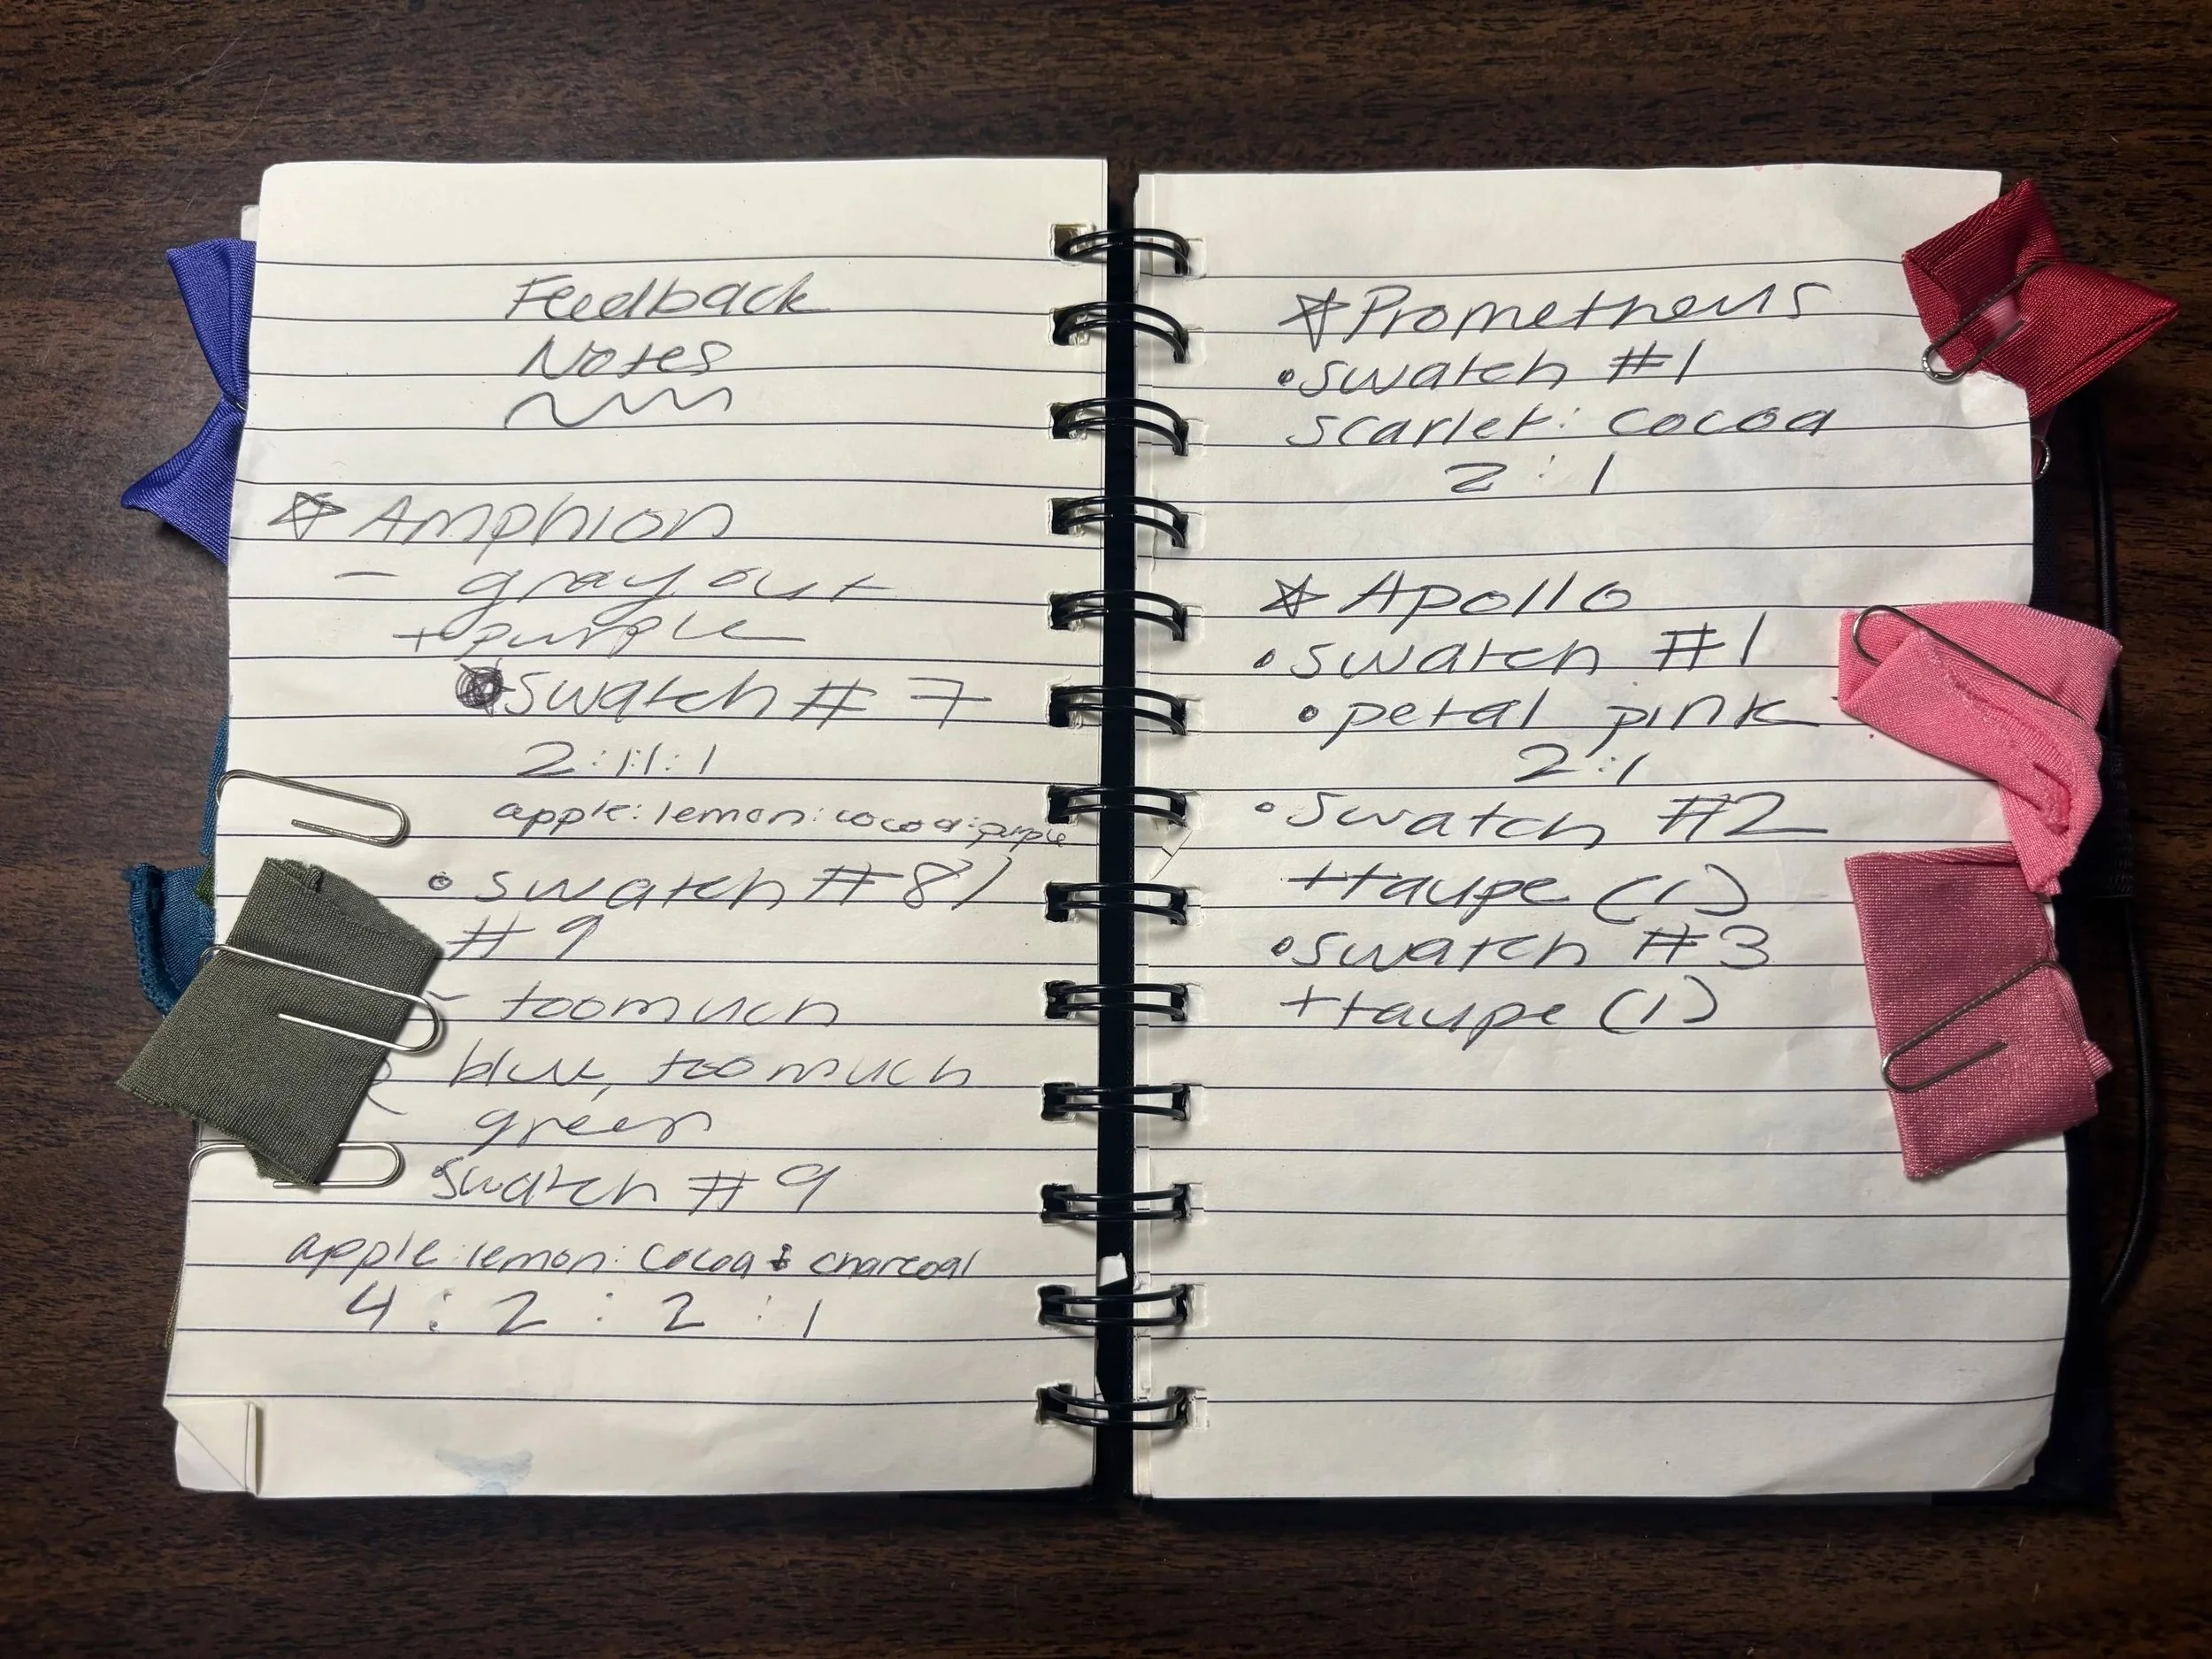 Feedback
Notes
Amphion
- gray out
+ purple
swatch # 7
2:1:1:1
apple: lemon: cocoa: purple
swatch # 8 /
# 9
- too much
blue, too much
green
swatch # 9
apple: lemon: cocoa: charcoal
4 : 2 : 2 : 1
Prometheus
• swatch #1
scarlet: cocoa
2 : 1
Apollo
• swatch #1
• petal pink
2:1
• swatch #2
+ taupe (1)
• swatch #3
+ taupe (1)